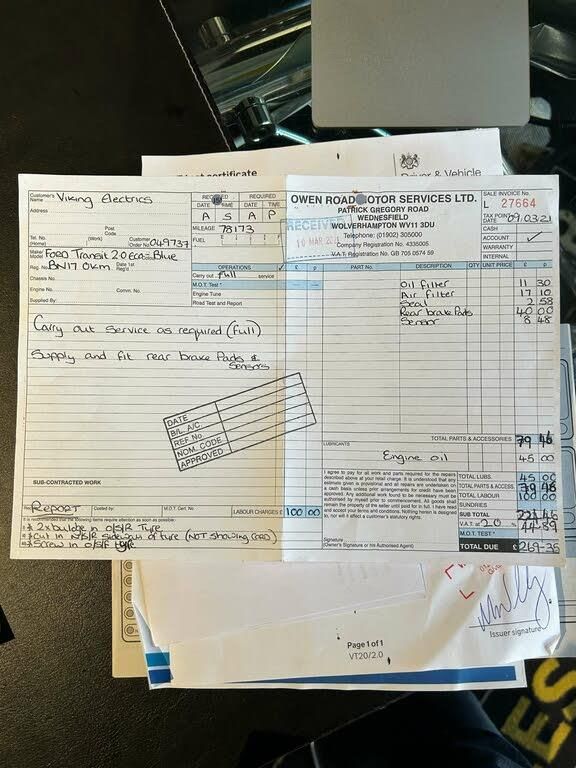 certificate
Driver & Vehicle
Customer's Name Viking Electrics
Address
Post Code
Tel. No. (Home)
(Work)
Customer Order No. 049737
Make/Model Ford Transit 2.0 Eco-Blue
Reg. No. BN17 OKM Date 1st Reg'd
Chassis No.
Engine No. Comm. No.
Supplied By:
RECEIVED REQUIRED
DATE TIME DATE TIME
A S A P
MILEAGE 78173
FUEL E F
OPERATIONS ✓ £ p
Carry out Full service
M.O.T. Test *
Engine Tune
Road Test and Report
OWEN ROAD MOTOR SERVICES LTD.
PATRICK GREGORY ROAD
WEDNESFIELD
WOLVERHAMPTON WV11 3DU
Telephone: (01902) 305000
Company Registration No. 4335005
V.A.T. Registration No. GB 705 0574 59
RECEIVED
10 MAR
SALE INVOICE No.
L 27664
TAX POINT DATE 09.03.21
CASH
ACCOUNT ✓
WARRANTY
INTERNAL
PART No. DESCRIPTION QTY UNIT PRICE £ p
Oil filter 11 30
Air filter 17 10
Seal 2 58
Rear brake Pads 40 00
Sensor 8 48
Carry out service as required (Full)
Supply and fit rear brake Pads &
Sensors
DATE
B/L A/C
REF No.
NOM. CODE
APPROVED
TOTAL PARTS & ACCESSORIES 79 46
LUBRICANTS
Engine oil 45 00
SUB-CONTRACTED WORK
I agree to pay for all work and parts required for the repairs
described above at your retail charge. It is understood that any
estimate given is provisional and all repairs are undertaken on
a cash basis unless prior arrangements for credit have been
approved. Any additional work found to be necessary must be
reported to me by you prior to commencement. All goods shall
remain the property of the seller until paid for in full. I have read
and accept your terms and conditions. Nothing herein is designed
to, nor will it affect a customer's statutory rights.
Signature
(Owner's Signature or his Authorised Agent)
TOTAL LUBS. 45 00
TOTAL PARTS & ACCESS. 79 46
TOTAL LABOUR 100 00
SUNDRIES
SUB TOTAL 224 46
V.A.T. at 20 % 44 89
M.O.T. TEST *
TOTAL DUE £ 269-35
REPORT Costed by: M.O.T. Cert. No. LABOUR CHARGES £ 100 00
It is recommended that the following items require attention as soon as possible:
* 2 x bulge in O/S/R Tyre
* Cut in N/S/R sidewall of tyre (NOT showing CORD)
* Screw in O/S/F tyre
Issuer signature
Page 1 of 1
VT20/2.0